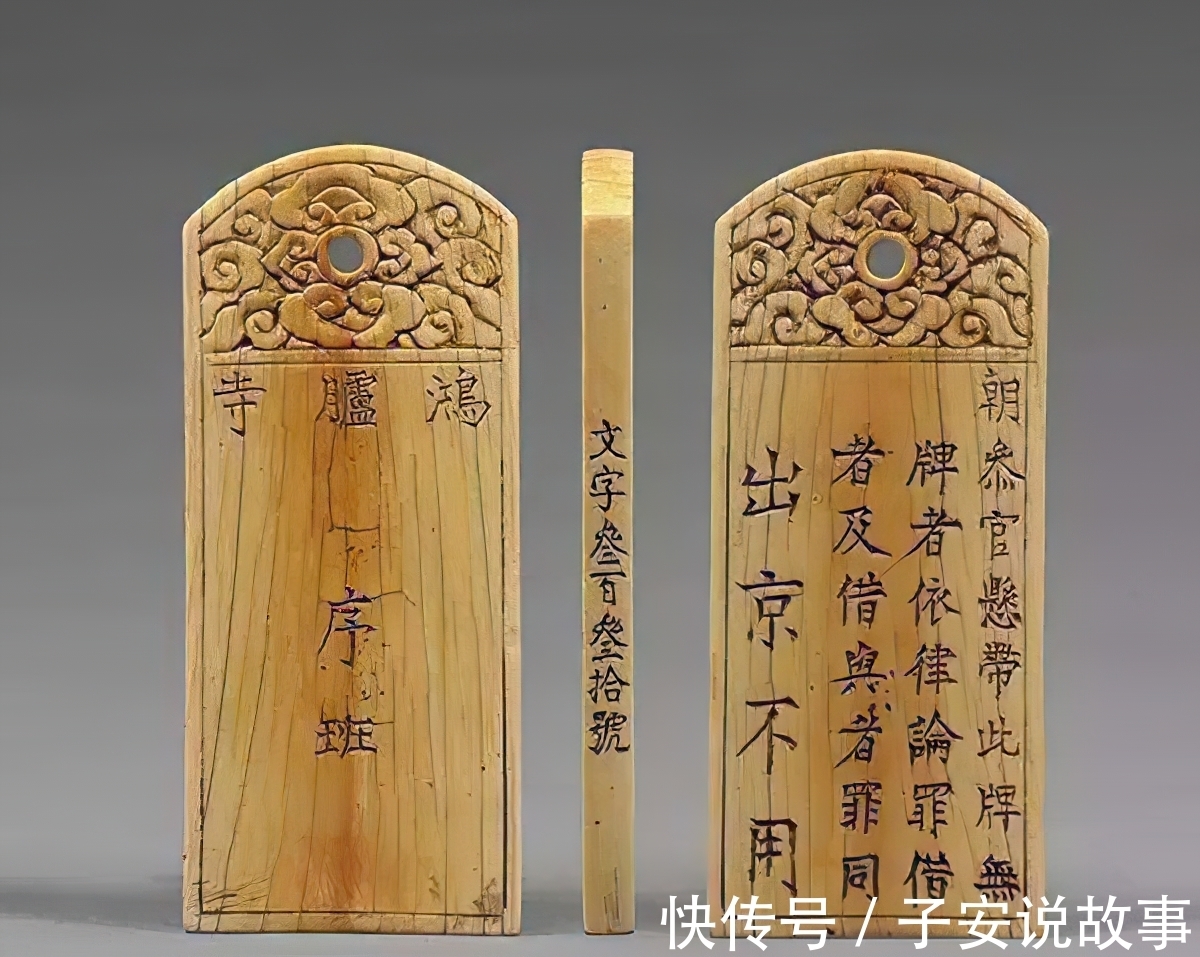 鴻臚寺
序班
文字叄百叄拾號
朝參官懸帶此牌無
牌者依律論罪借
者及借與者罪同
出京不用
快传号 / 子安说故事